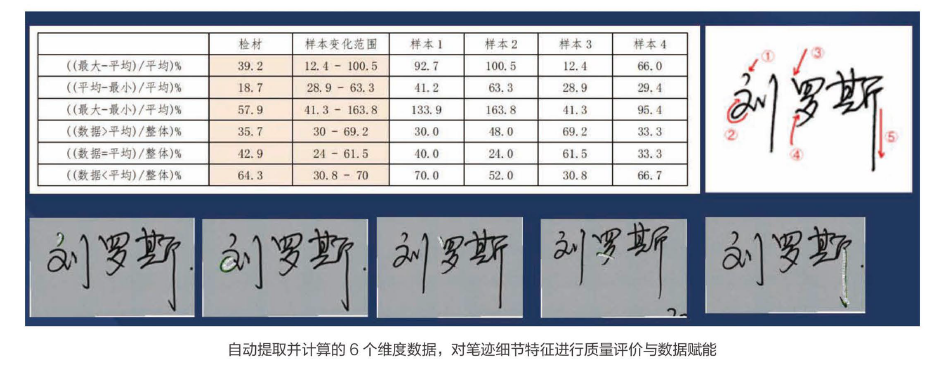 检材 样本变化范围 样本1 样本2 样本3 样本4
((最大-平均)/平均)% 39.2 12.4 - 100.5 92.7 100.5 12.4 66.0
((平均-最小)/平均)% 18.7 28.9 - 63.3 41.2 63.3 28.9 29.4
((最大-最小)/平均)% 57.9 41.3 - 163.8 133.9 163.8 41.3 95.4
((数据>平均)/整体)% 35.7 30 - 69.2 30.0 48.0 69.2 33.3
((数据=平均)/整体)% 42.9 24 - 61.5 40.0 24.0 61.5 33.3
((数据<平均)/整体)% 64.3 30.8 - 70 70.0 52.0 30.8 66.7
① ③
刘罗斯
② ④ ⑤
刘罗斯 刘罗斯 刘罗斯 刘罗斯 刘罗斯
自动提取并计算的 6 个维度数据，对笔迹细节特征进行质量评价与数据赋能